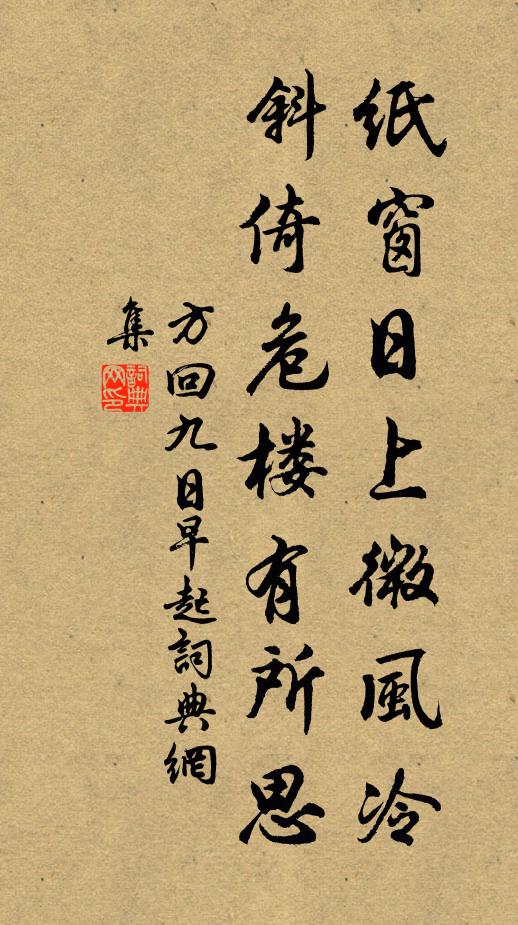 紙窗日上微風冷
斜倚危楼有所思
方回九日早起詞典網
集
詞典網印